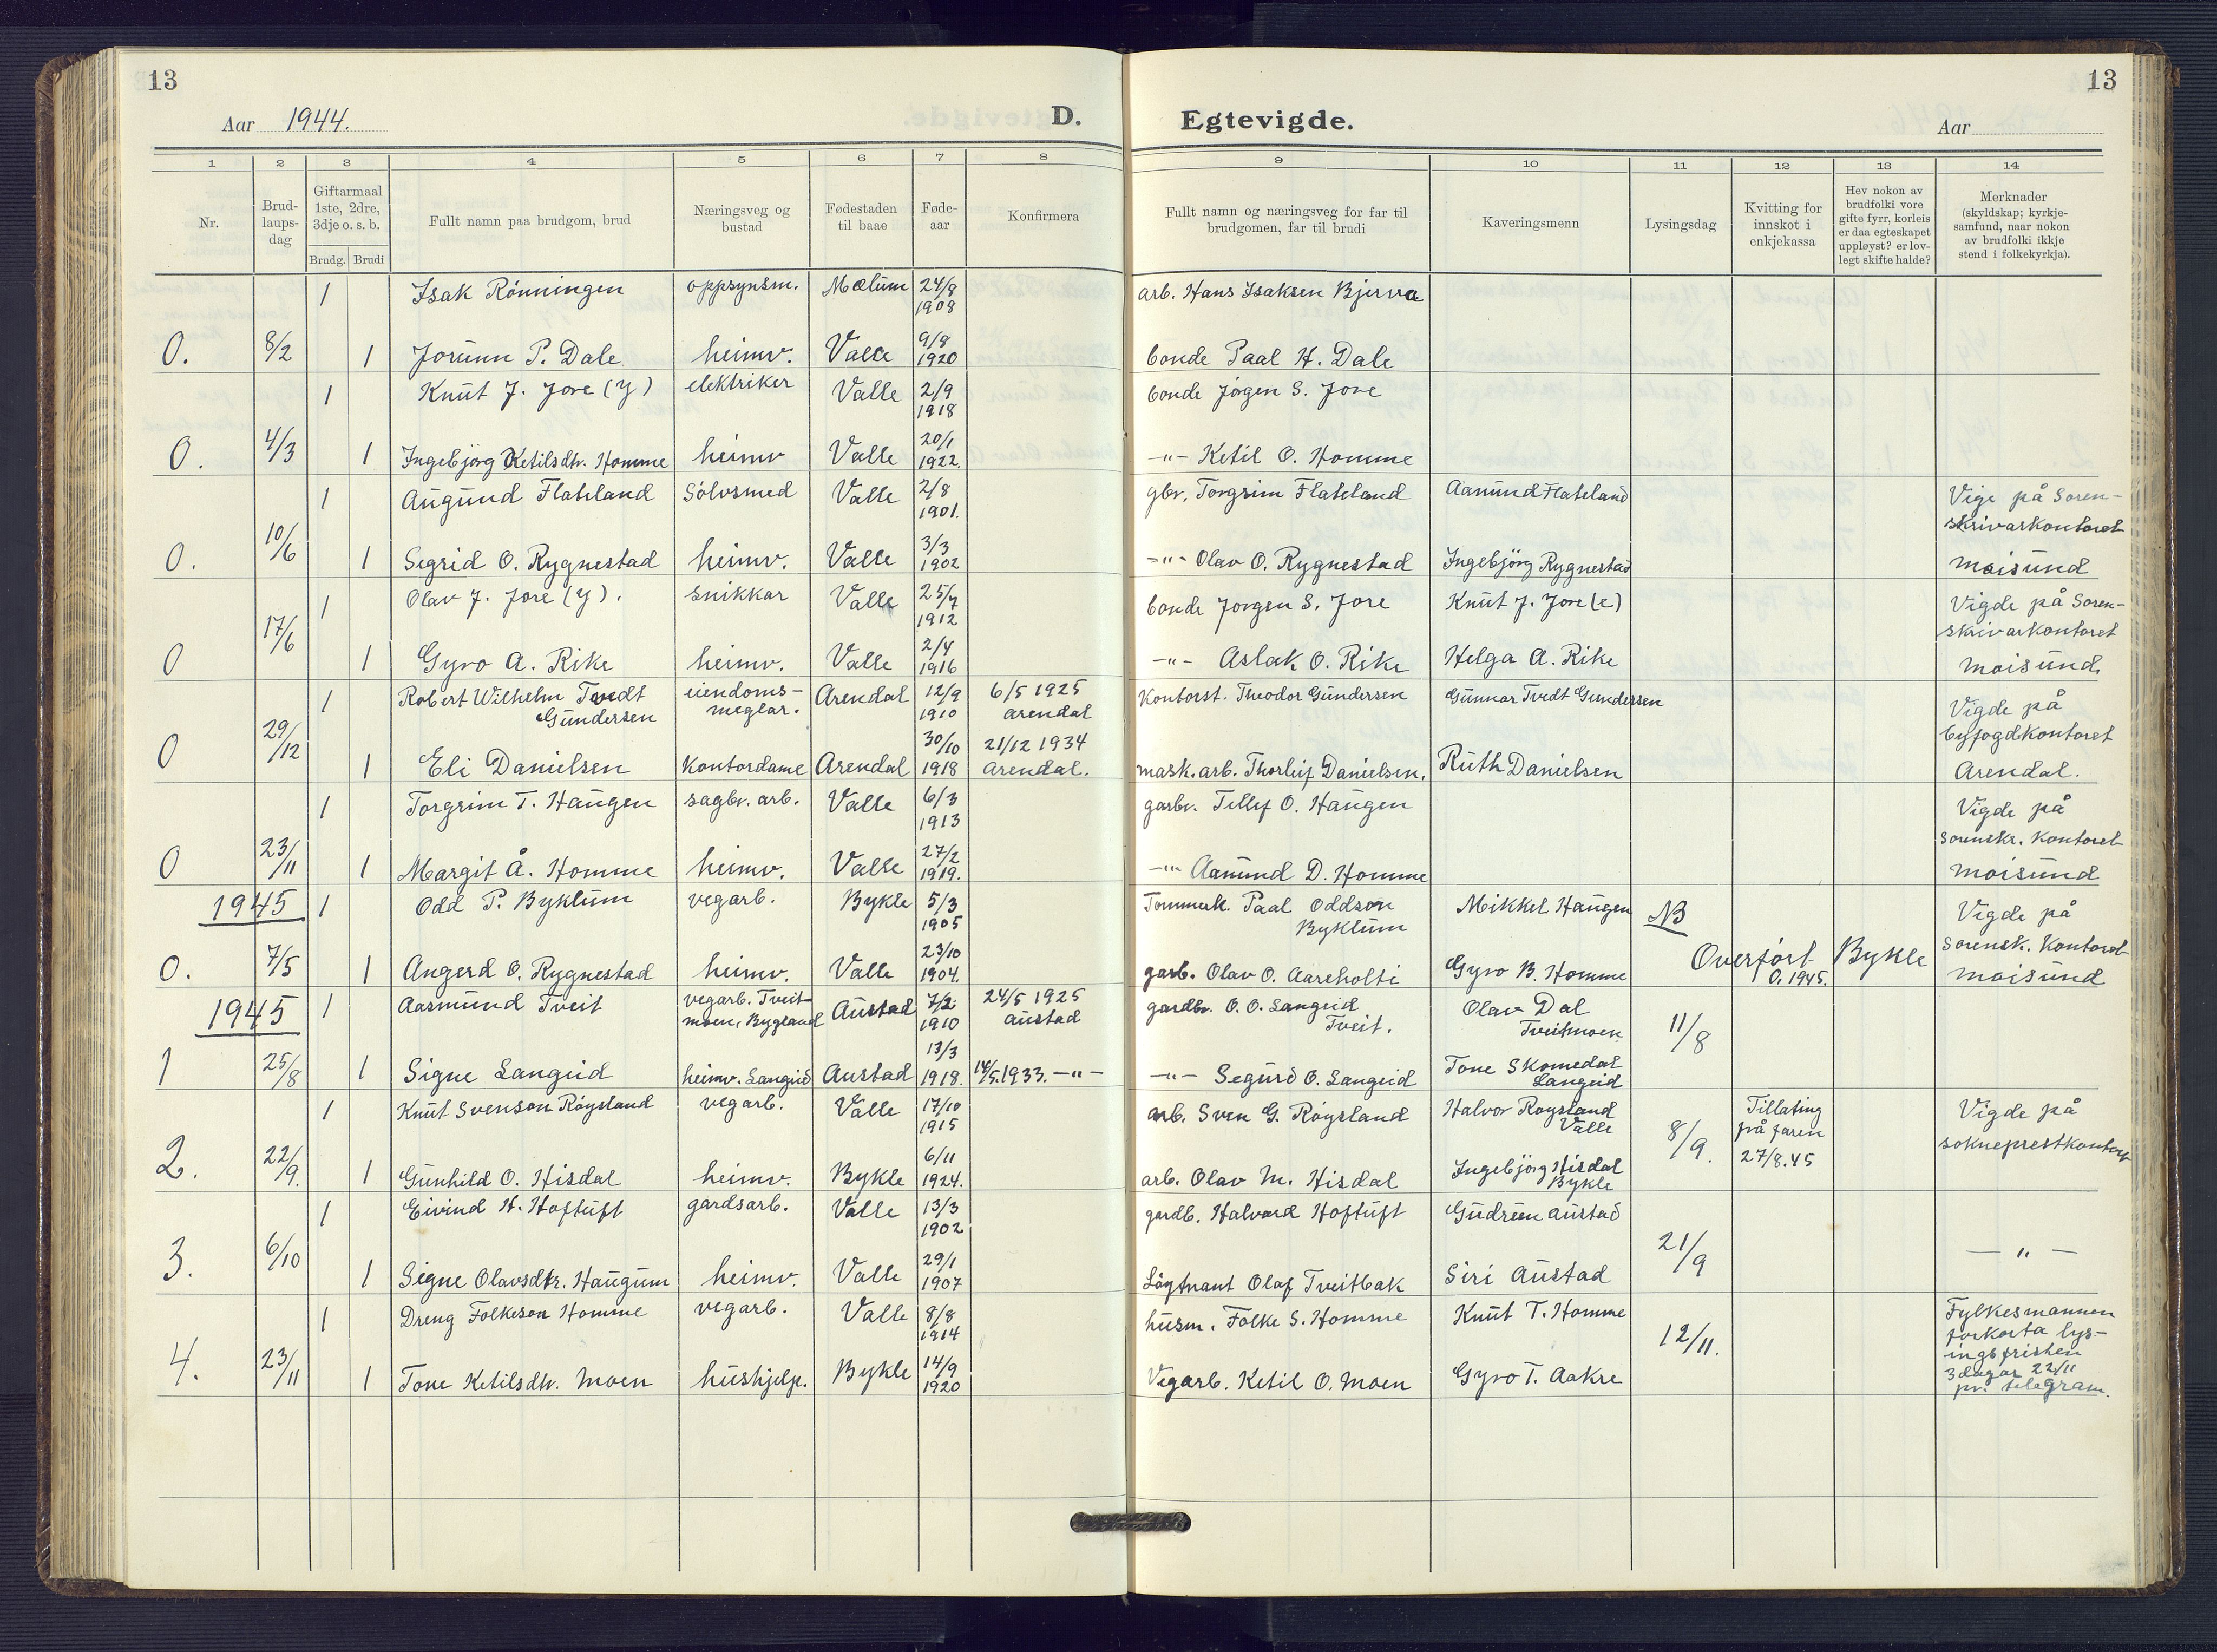 13
Aar 1944.
D.
Egtevigde.
Aar
13
1 2 3 4 5 6 7 8 9 10 11 12 13 14
Nr.
Brud-
laups-
dag
Giftarmaal
1ste, 2dre,
3dje o. s. b.
Brudg. Brudi
Fullt namn paa brudgom, brud
Næringsveg og
bustad
Fødestaden
til baae
Føde-
aar
Konfirmera
Fullt namn og næringsveg for far til
brudgomen, far til brudi
Kaveringsmenn
Lysingsdag
Kvitting for
innskot i
enkjekassa
Hev nokon av
brudfolki vore
gifte fyrr, korleis
er daa egteskapet
uppløyst? er lov-
legt skifte halde?
Merknader
(skyldskap; kyrkje-
samfund, naar nokon
av brudfolki ikkje
stend i folkekyrkja).
1 Isak Rönningen oppsynsm. Mælum 24/8 1908 arb. Hans Isaksen Bjerva
O. 8/2 1 Jorunn P. Dale heimv. Valle 9/8 1920 bonde Paal H. Dale
1 Knut J. Jore (y) elektriker Valle 2/9 1918 bonde Jörgen S. Jore
O. 4/3 1 Ingebjörg Ketilsdtr. Homme heimv Valle 20/1 1922. -"- Ketil O. Homme
1 Augund Flateland Sölvsmed Valle 2/8 1901. gbr. Torgrim Flateland Aanund Flateland Vige på Soren-
skrivarkontoret
O. 10/6 1 Sigrid O. Rygnestad heimv. Valle 3/3 1902 -"- Olav O. Rygnestad Ingebjörg Rygnestad moisund
1 Olav J. Jore (y). snikkar Valle 25/7 1912 bonde Jorgen S. Jore Knut J. Jore (e) Vigde på Soren-
skrivarkontoret
O 17/6 1 Gyro A. Rike heimv. Valle 2/4 1916 -"- Aslak O. Rike Helga A. Rike moisund
1 Robert Wilhelm Tvedt
Gundersen eiendoms-
meglar. Arendal 12/9 1910 6/5 1925
Arendal Kontorst. Theodor Gundersen Gunnar Tvedt Gundersen Vigde på
byfogdkontoret
O 29/12 1 Eli Danielsen Kontordame Arendal 30/10 1918 21/12 1934
Arendal. mask. arb. Thorleif Danielsen. Ruth Danielsen Arendal.
1 Torgrim T. Haugen sagbr. arb. Valle 6/3 1913 garbr. Tellef O. Haugen Vigde på
sorenskr. Kontoret
O 23/11 1 Margit Å. Homme heimv. Valle 27/2 1919. -"- Aanund D. Homme moisund
1945 1 Odd P. Byklum vegarb. Bykle 5/3 1905 Tommerh. Paal Oddson
Byklum Mikkel Haugen NB Vigde på
sorensk. Kontoret
O. 7/5 1 Angerd O. Rygnestad heimv. Valle 23/10 1904. garb. Olav O. Aareholti Gyro B. Homme Overfört Bykle
O. 1945. moisund
1945 1 Aasmund Tveit vegarb. Tveit-
moen, Bygland Austad 7/2 1910 24/5 1925
Austad gardbr. O. O. Langeid
Tveit. Olav Dal
Tveitmoen 11/8
1 25/8 1 Signe Langeid heimv. Langeid Austad 13/3 1918. 14/5. 1933. -"- -"- Segurd O. Langeid Tone Skomedal
Langeid
1 Knut Svenson Röysland vegarb. Valle 17/10 1915 arb. Sven G. Röysland Halvor Roysland
Valle 8/9. Tillating
på faren
27/8.45 Vigde på
sokneprestkontoret
2. 22/9. 1 Gunhild O. Hisdal heimv. Bykle 6/11 1924. arb. Olav M. Hisdal Ingebjörg Hisdal
Bykle
1 Eivind H. Hoftuft gardsarb. Valle 13/3 1902 gardb. Halvard Hoftuft Gudrun Austad 21/9 — " —
3. 6/10 1 Signe Olavsdtr. Haugum heimv. Valle 29/1 1907 Löytnant Olaf Tveitbak Siri Austad
1 Dreng Folkeson Homme vegarb. Valle 8/8 1914 husm. Folke S. Homme Knut T. Homme 12/11. Fylkesmannen
forkorta lys-
ingsfristen
3 dagar 22/11
pr. telegram.
4. 23/11 1 Tone Ketilsdtr. Moen hushjelp. Bykle 14/9 1920 Vegarb. Ketil O. Moen Gyro T. Aakre